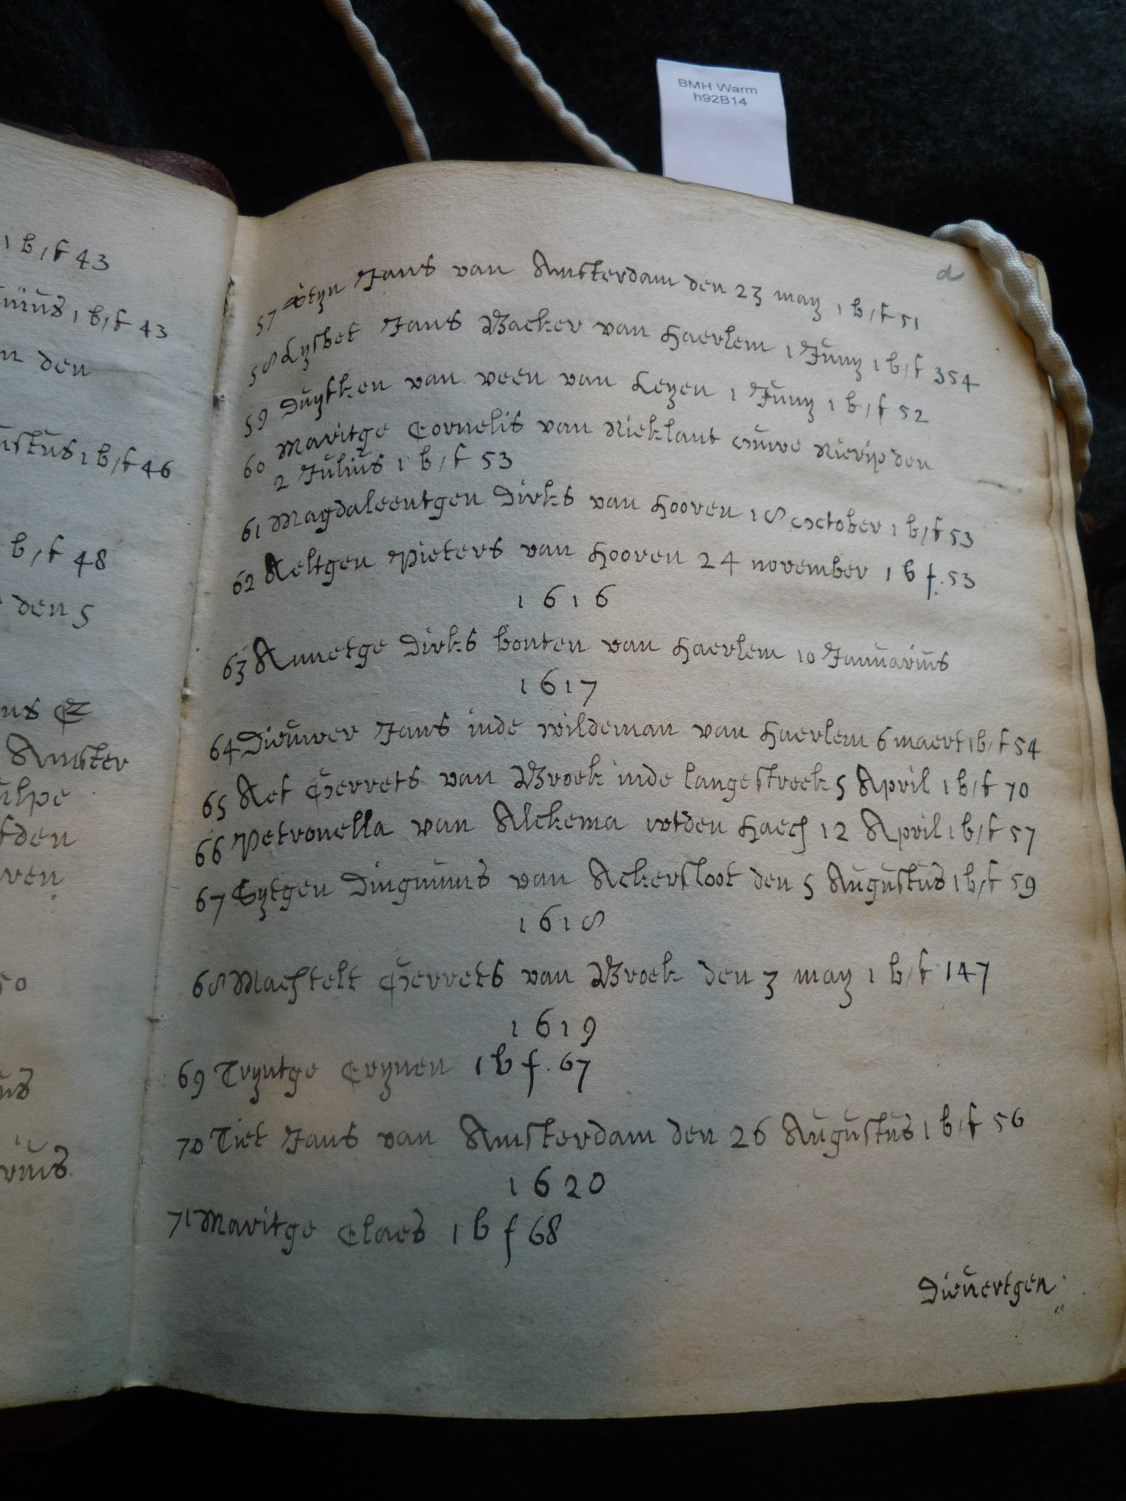 BMH Warm
h92B14
1 b, f 43
1 b, f 43
den
1 b, f 46
b, f 48
den 5
Amster
den
50
d
57 Stijn Jans van Amsterdam den 23 may 1 b, f 51
58 Lysbet Jans Backer van Haerlem 1 Juny 1 b, f 354
59 Duijfken van veen van Leyen 1 Juny 1 b, f 52
60 Maritge Cornelis van Nieklant ouwe Nierip den
2 Julius 1 b, f 53
61 Magdaleentgen Dirks van Hooren 18 october 1 b, f 53
62 Aeltgen Pieters van Hooren 24 november 1 b f. 53
1616
63 Annetge Dirks bonten van Haerlem 10 Januarius
1617
64 Dieuwer Jans inde wildeman van Haerlem 6 maert 1 b, f 54
65 Aef Gerrets van Broek inde langestreek 5 April 1 b, f 70
66 Petronella van Alckema wtden Haech 12 April 1 b, f 57
67 Gytgen Dingnums van Ackersloot den 5 Augustus 1 b, f 59
1618
68 Machtelt Gerrets van Broek den 3 may 1 b, f 147
1619
69 Tryntge Crynen 1 b f. 67
70 Tiet Jans van Amsterdam den 26 Augustus 1 b, f 56
1620
71 Maritge Claes 1 b f 68
Dieuertgen